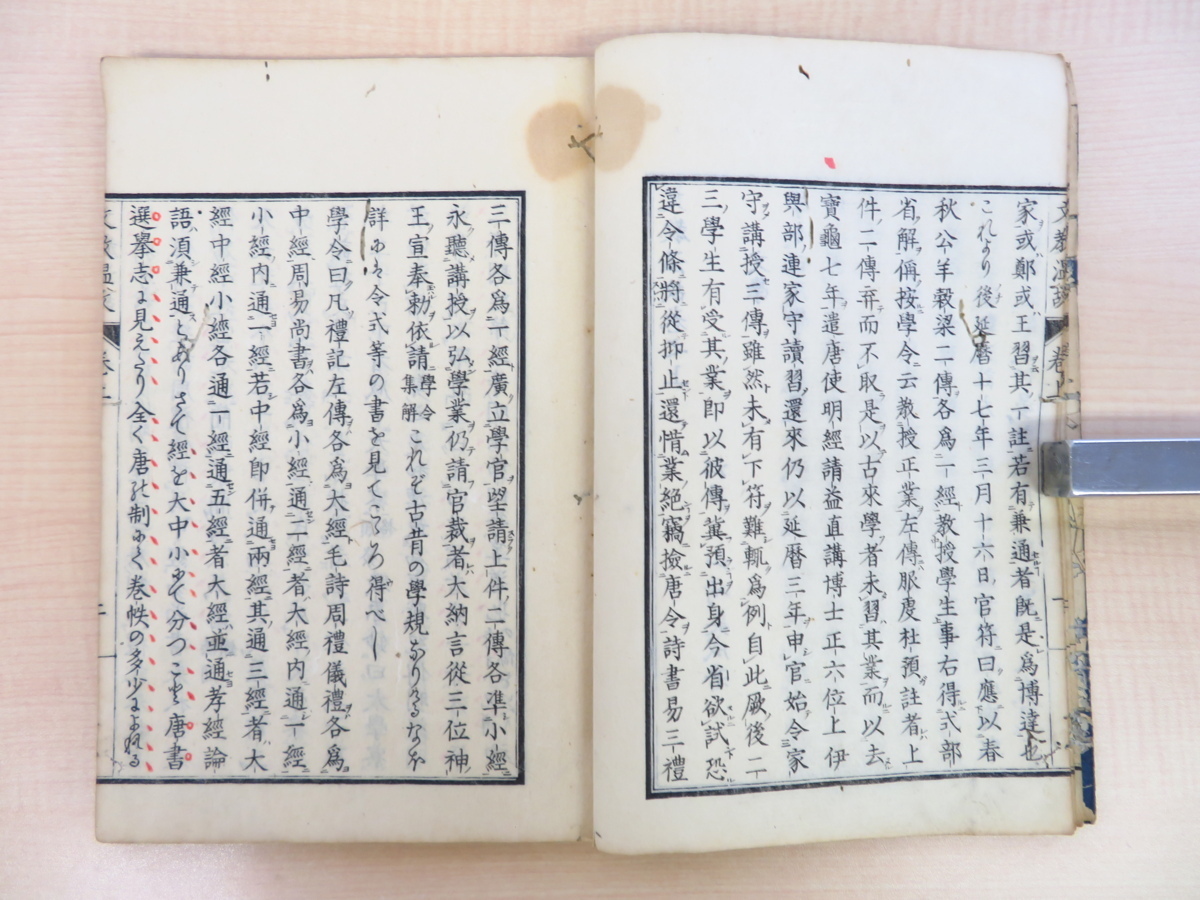 家或鄭或王習其一註若有兼通者既是爲博達也
これより後延曆十七年三月十六日官符曰應以春
秋公羊穀梁二傳各爲一經敎授學生事右得式部
省解偁按學令云敎授正業左傳服虔杜預註者上
件二傳弃而不取是以古來學者未習其業而以去
寶龜七年遣唐使明經請益直講博士正六位上伊
與部連家守讀習還來仍以延曆三年申官始令家
守講授三傳雖然未有下符難輒爲例自此厥後二
三學生有受其業即以彼傳冀預出身今省欲試恐
違令條將從抑止還惜業絕竊撿唐令詩書易三禮
三傳各爲一經廣立學官望請上件二傳各準小經
永聽講授以弘學業仍請官裁者大納言從三位神
王宣奉勅依請學令集解これぞ古昔の學規なりけるなほ
詳には令式等の書を見てこころ得べし
學令曰凡禮記左傳各爲大經毛詩周禮儀禮各爲
中經周易尚書各爲小經通二經者大經内通一經
小經内通一經若中經即併通兩經其通三經者大
經中經小經各通一經通五經者大經並通孝經論
語須兼通とありさて經を大中小にて分つこと唐書
選擧志に見えたり全く唐の制にて卷帙の多少によれる
文敎溫故
卷上
文敎溫故